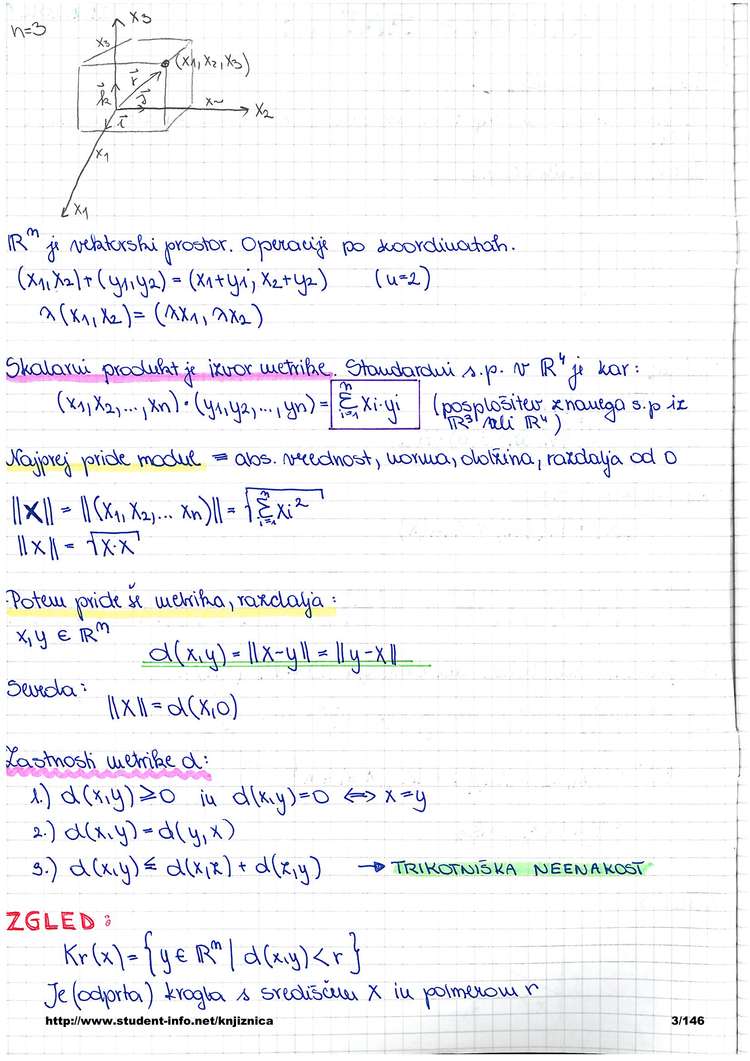 n=3
x3
x3
(x1, x2, x3)
r
k
j
x2
x2
i
x1
x1
ℝⁿ je vektorski prostor. Operacije po koordinatah.
(x1,x2)+(y1,y2) = (x1+y1, x2+y2) (n=2)
λ(x1,x2)=(λx1, λx2)
Skalarni produkt je izvor metrike. Standardni s.p. v ℝⁿ je kar:
(x1,x2,...,xn)·(y1,y2,...,yn) = Σ i=1 n xi·yi (posplošitev znanega s.p iz
ℝ³ ali ℝ⁴)
Najprej pride modul = abs. vrednost, norma, dolžina, razdalja od 0
||x|| = ||(x1, x2,... xn)|| = √Σ i=1 n xi²
||x|| = √x·x
Potem pride še metrika, razdalja:
x,y ∈ ℝⁿ
d(x,y) = ||x-y|| = ||y-x||
Seveda:
||x|| = d(x,0)
Lastnosti metrike d:
1.) d(x,y) ≥ 0 in d(x,y)=0 ⟺ x=y
2.) d(x,y) = d(y,x)
3.) d(x,y) ≤ d(x,z) + d(z,y) → TRIKOTNIŠKA NEENAKOST
ZGLED:
Kr(x) = {y ∈ ℝⁿ | d(x,y) < r}
Je (odprta) krogla s središčem x in polmerom r
http://www.student-info.net/knjiznica 3/146